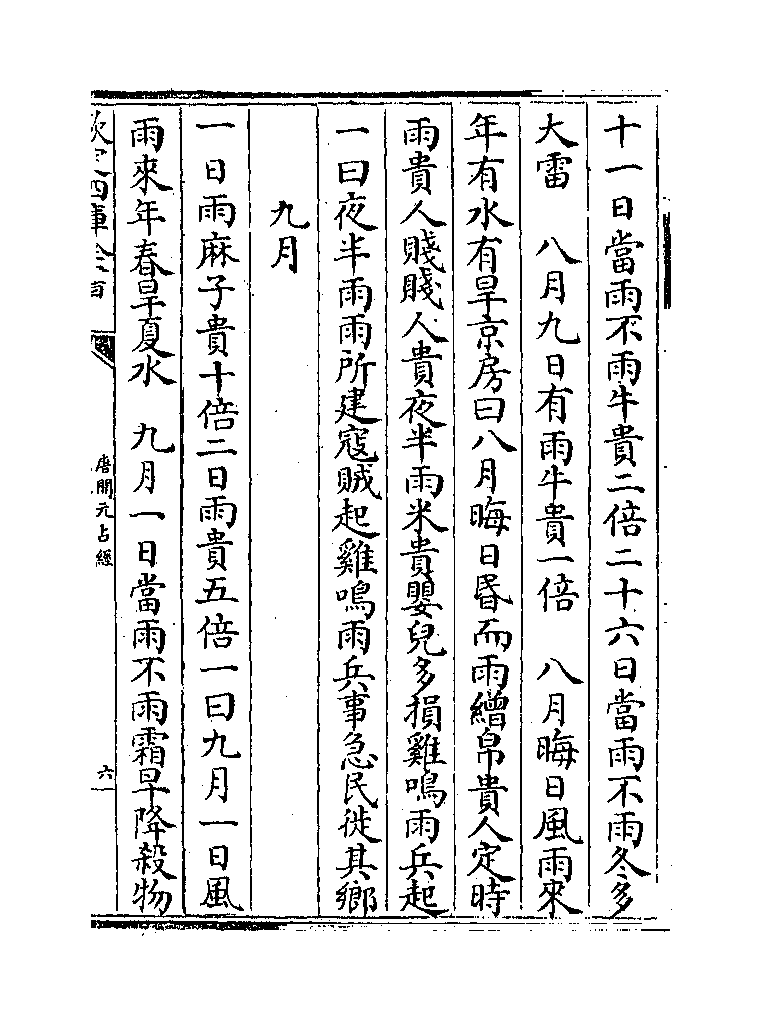 十一日當雨不雨牛貴二倍二十六日當雨不雨冬多
大雷　八月九日有雨牛貴一倍　八月晦日風雨來
年有水有旱京房曰八月晦日昏而雨繒帛貴人定時
雨貴人賤賤人貴夜半雨米貴嬰兒多損雞鳴雨兵起
一曰夜半雨雨所建寇賊起雞鳴雨兵事急民徙其鄉
九月
一日雨麻子貴十倍二日雨貴五倍一曰九月一日風
雨來年春旱夏水　九月一日當雨不雨霜早降殺物
欽定四庫全書
唐開元占經
六